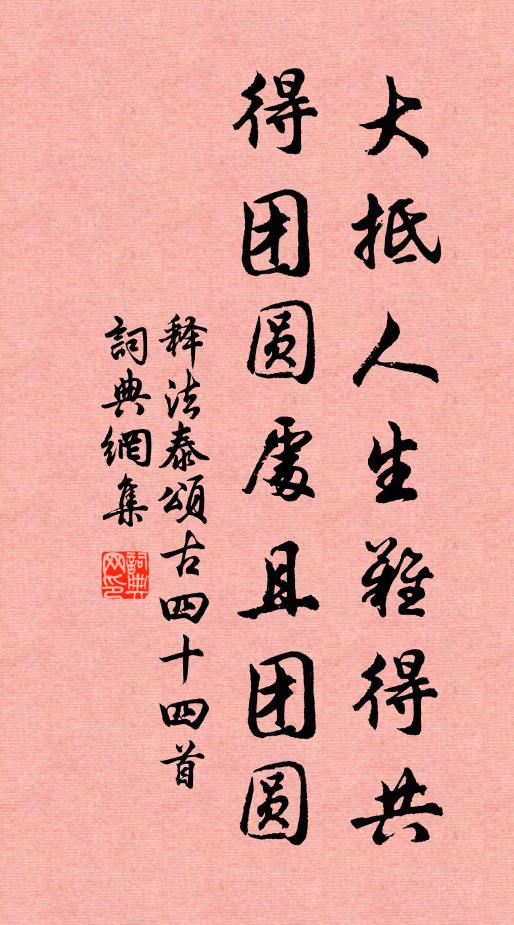 大抵人生難得共
得团圆處且团圆
释法泰頌古四十四首
詞典網集
詞典网印